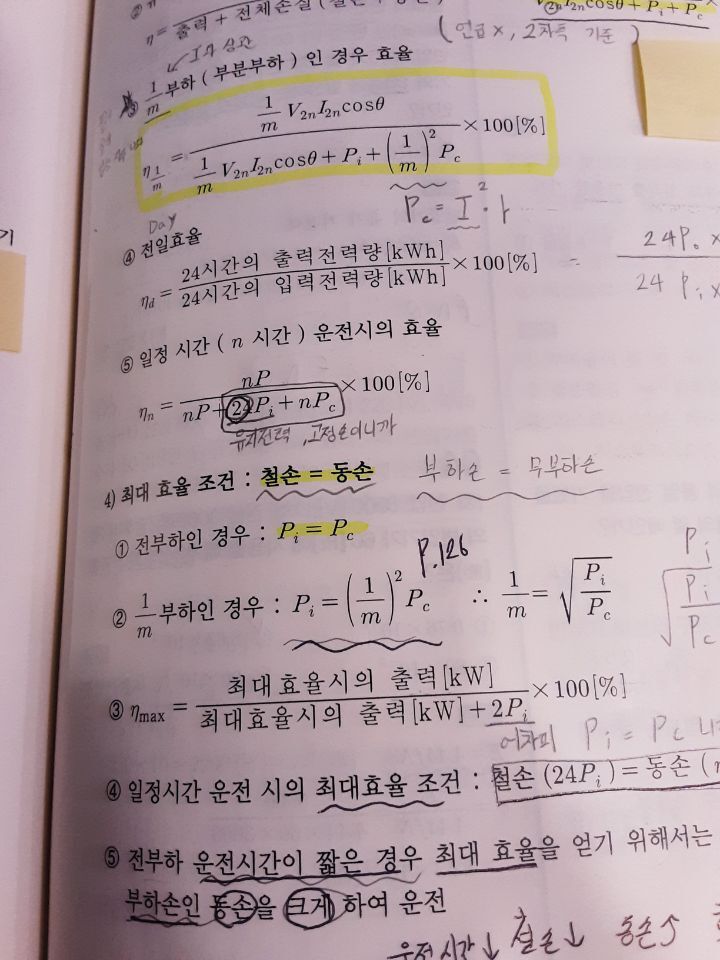 η = 출력 + 전체손실
V₂ₙI₂ₙcosθ + Pᵢ + P꜀
(언급 X, 2차측 기준)
I와 상관
③ 1/m 부하 (부분부하) 인 경우 효율
η_{1/m} = \frac{\frac{1}{m} V_{2n} I_{2n} cosθ}{\frac{1}{m} V_{2n} I_{2n} cosθ + P_i + (\frac{1}{m})^2 P_c} × 100 [%]
P_c = I² · r
Day
④ 전일효율
η_d = \frac{24시간의 출력전력량 [kWh]}{24시간의 입력전력량 [kWh]} × 100 [%] = \frac{24P_o}{24 P_i} ×
⑤ 일정 시간 ( n 시간 ) 운전시의 효율
η_n = \frac{nP}{nP + 24P_i + nP_c} × 100 [%]
유지전력, 고정손이니까
4) 최대 효율 조건 : 철손 = 동손 부하손 = 무부하손
① 전부하인 경우 : P_i = P_c
P.126
② 1/m 부하인 경우 : P_i = (\frac{1}{m})^2 P_c ∴ \frac{1}{m} = \sqrt{\frac{P_i}{P_c}}
P_i
\sqrt{\frac{P_i}{P_c}}
③ η_max = \frac{최대효율시의 출력 [kW]}{최대효율시의 출력 [kW] + 2P_i} × 100 [%]
어차피 P_i = P_c 니
④ 일정시간 운전 시의 최대효율 조건 : 철손 (24P_i) = 동손 (
⑤ 전부하 운전시간이 짧은 경우 최대 효율을 얻기 위해서는
부하손인 동손을 크게 하여 운전
운전시간↓ 철손↓ 동손↑